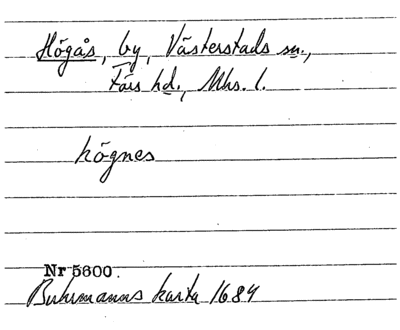 Högås, by, Västerstads sn.,
Färs hd., Mhs. l.
högnes
Nr 5600.
Buhrmanns karta 1684